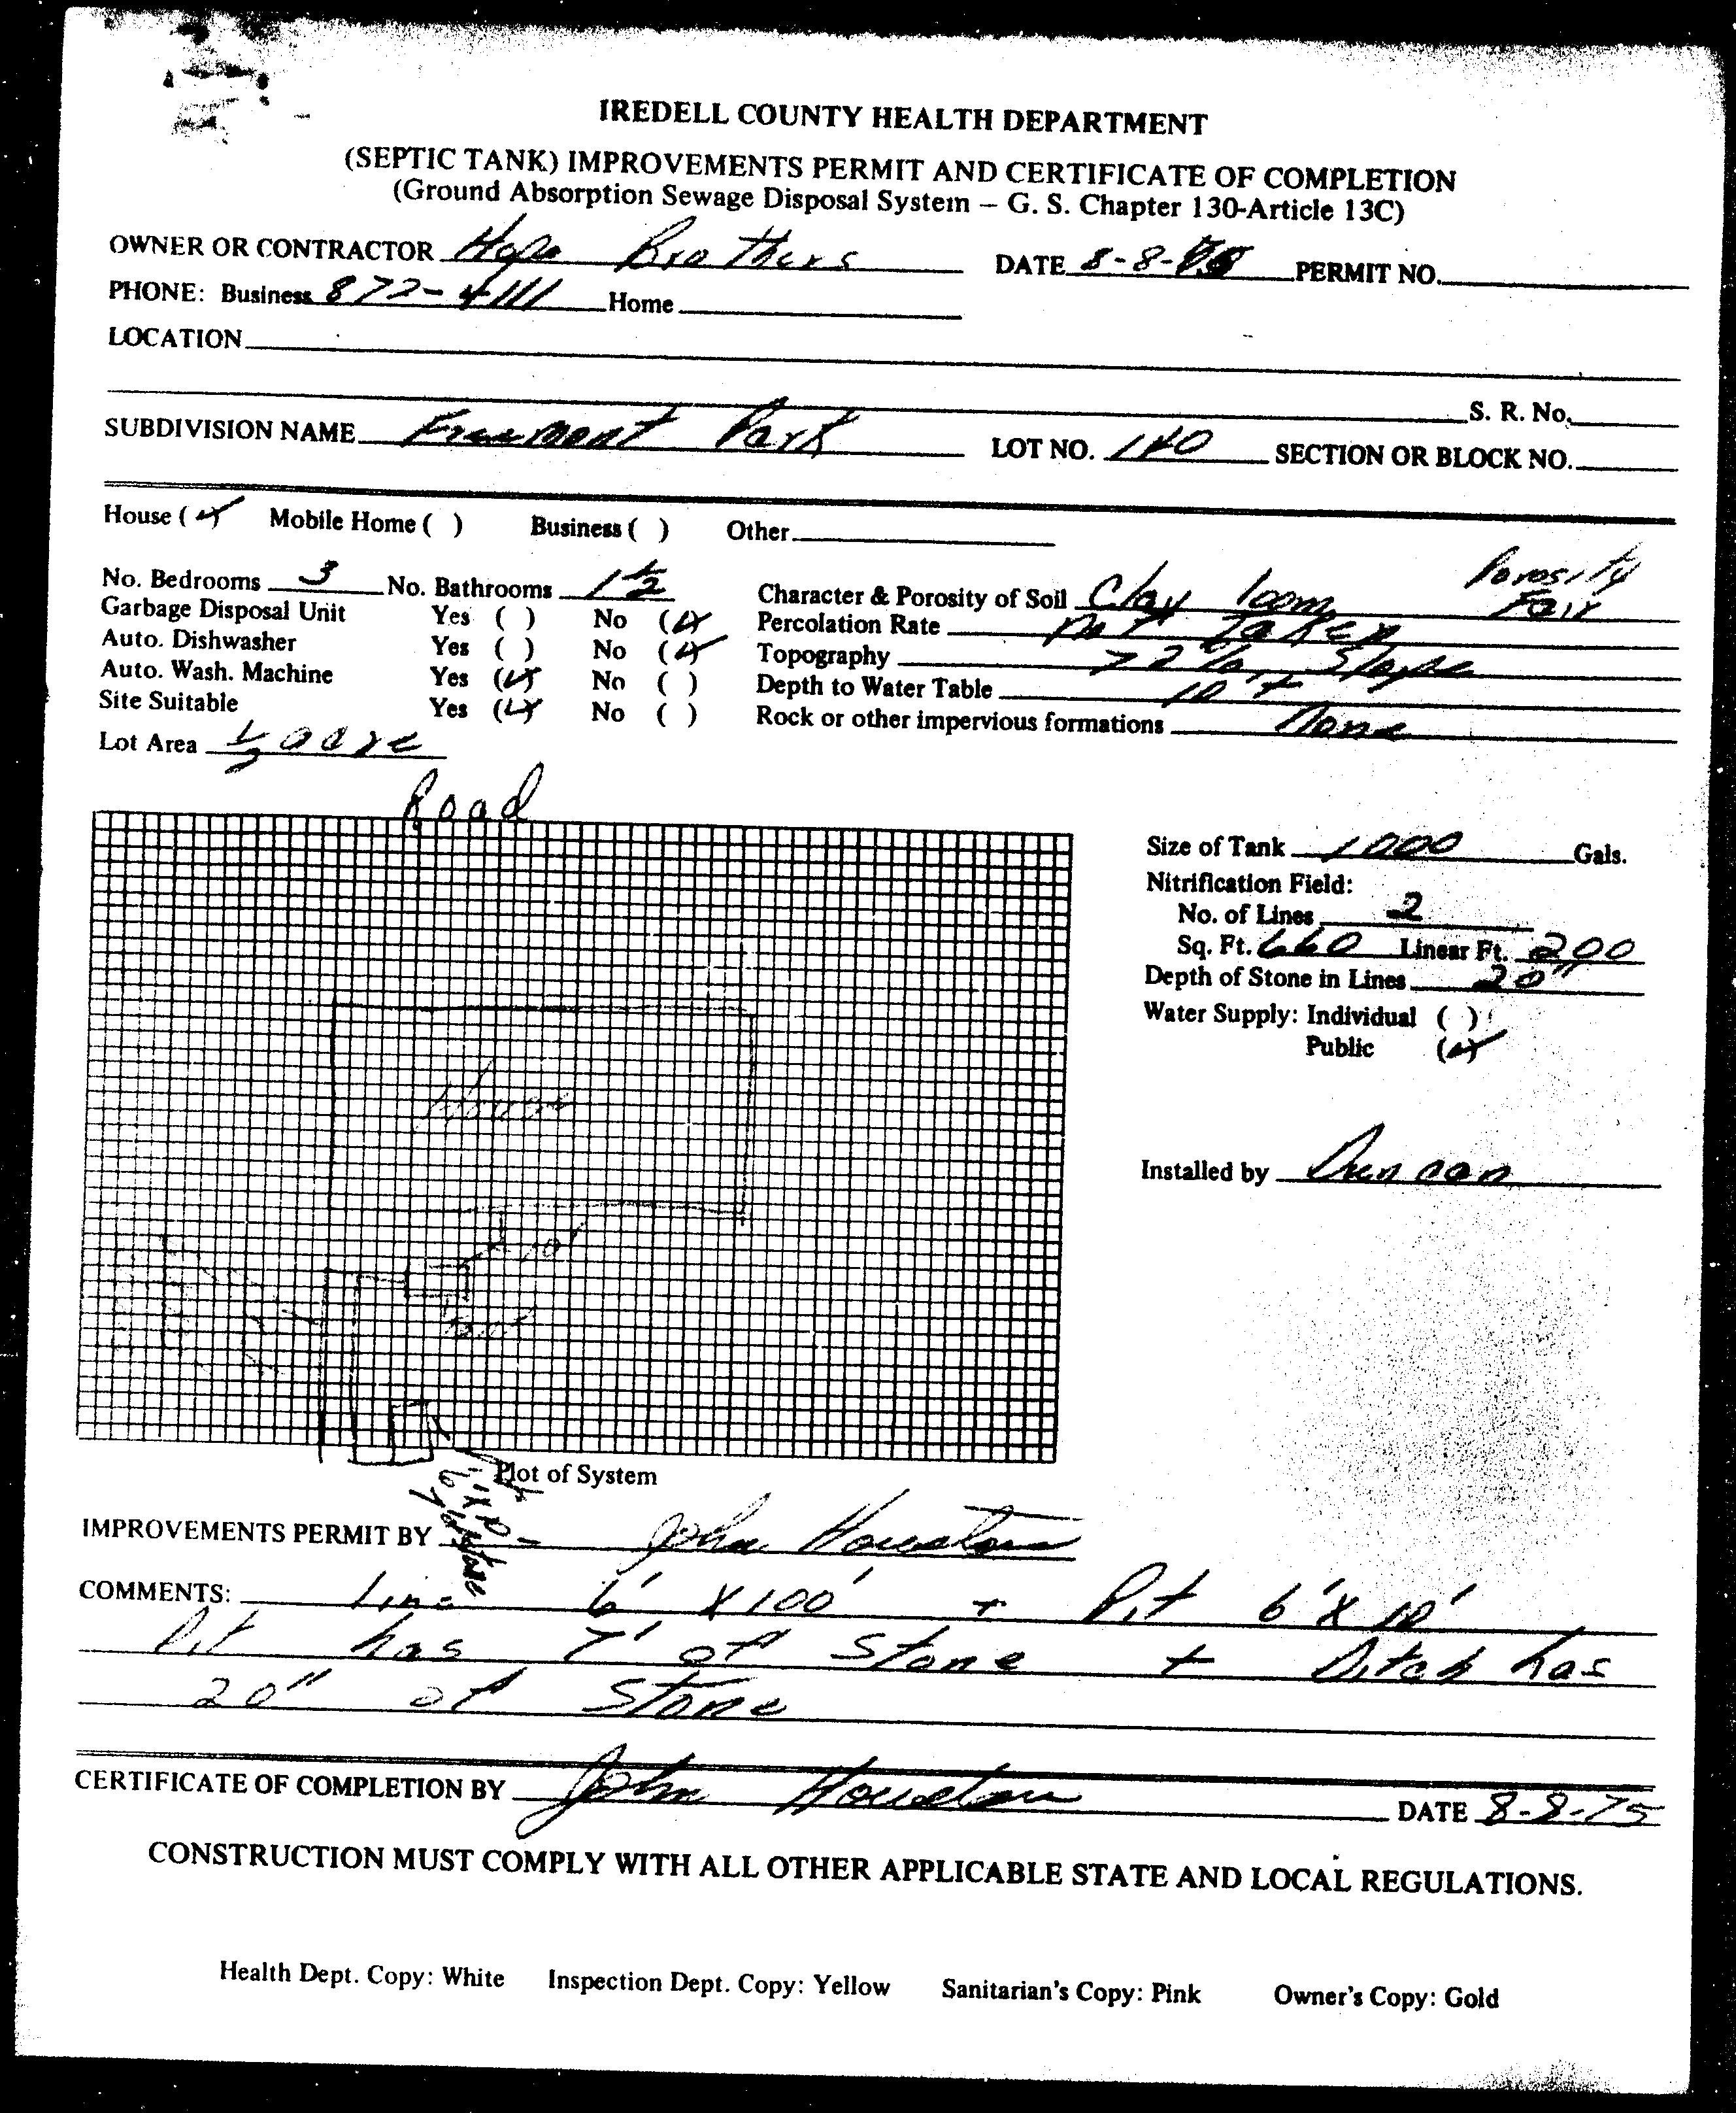 IREDELL COUNTY HEALTH DEPARTMENT
(SEPTIC TANK) IMPROVEMENTS PERMIT AND CERTIFICATE OF COMPLETION
(Ground Absorption Sewage Disposal System – G. S. Chapter 130-Article 13C)
OWNER OR CONTRACTOR Hope Brothers DATE 8-8-75 PERMIT NO.
PHONE: Business 872-4111 Home
LOCATION
S. R. No.
SUBDIVISION NAME Freemont Park LOT NO. 140 SECTION OR BLOCK NO.
House (✓) Mobile Home ( ) Business ( ) Other
No. Bedrooms 3 No. Bathrooms 1 1/2 Character & Porosity of Soil Clay loom Porosity Fair
Garbage Disposal Unit Yes ( ) No (✓) Percolation Rate not Taken
Auto. Dishwasher Yes ( ) No (✓) Topography >2% Slope
Auto. Wash. Machine Yes (✓) No ( ) Depth to Water Table 10'+
Site Suitable Yes (✓) No ( ) Rock or other impervious formations None
Lot Area 1/2 acre
Road
Size of Tank 1000 Gals.
Nitrification Field:
No. of Lines 2
Sq. Ft. 660 Linear Ft. 200
Depth of Stone in Lines 20"
Water Supply: Individual ( )
Public (✓)
House
Installed by Duncan
10'
Tank
Plot of System
Pit
6'x10'
7' of Stone
IMPROVEMENTS PERMIT BY John Houston
COMMENTS: Line 6' X 100' + Pit 6' X 10'
Pit has 7' of Stone + Ditch has
20" of Stone
CERTIFICATE OF COMPLETION BY John Houston DATE 8-8-75
CONSTRUCTION MUST COMPLY WITH ALL OTHER APPLICABLE STATE AND LOCAL REGULATIONS.
Health Dept. Copy: White Inspection Dept. Copy: Yellow Sanitarian's Copy: Pink Owner's Copy: Gold